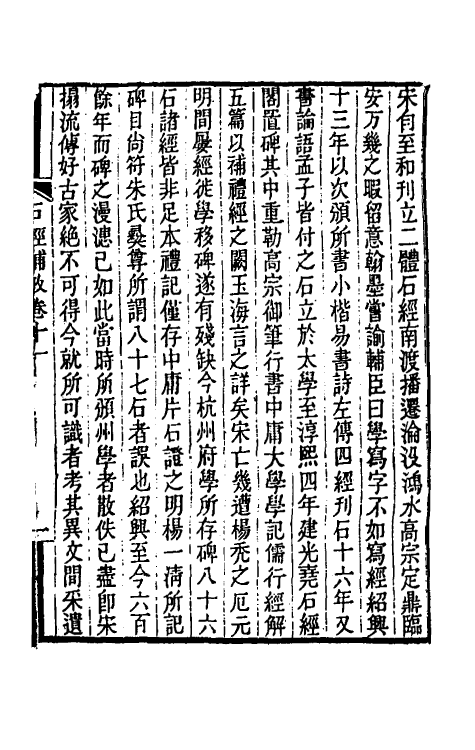 宋自至和刊立二體石經南渡播遷淪没鴻水高宗定鼎臨
安万幾之暇留意翰墨嘗諭輔臣曰學寫字不如寫經紹興
十三年以次頒所書小楷易書詩左傳四經刊石十六年又
書論語孟子皆付之石立於太學至淳熙四年建光堯石經
閣置碑其中重勒高宗御筆行書中庸大學學記儒行經解
五篇以補禮經之闕玉海言之詳矣宋亡幾遭楊禿之厄元
明間屢經徙學移碑遂有殘缺今杭州府學所存碑八十六
石諸經皆非足本禮記僅存中庸片石證之明楊一淸所記
碑目尙符朱氏彜尊所謂八十七石者誤也紹興至今六百
餘年而碑之漫漶已如此當時所頒州學者散佚已盡卽宋
搨流傳好古家絶不可得今就所可識者考其異文間采遺
石經補攷卷十一